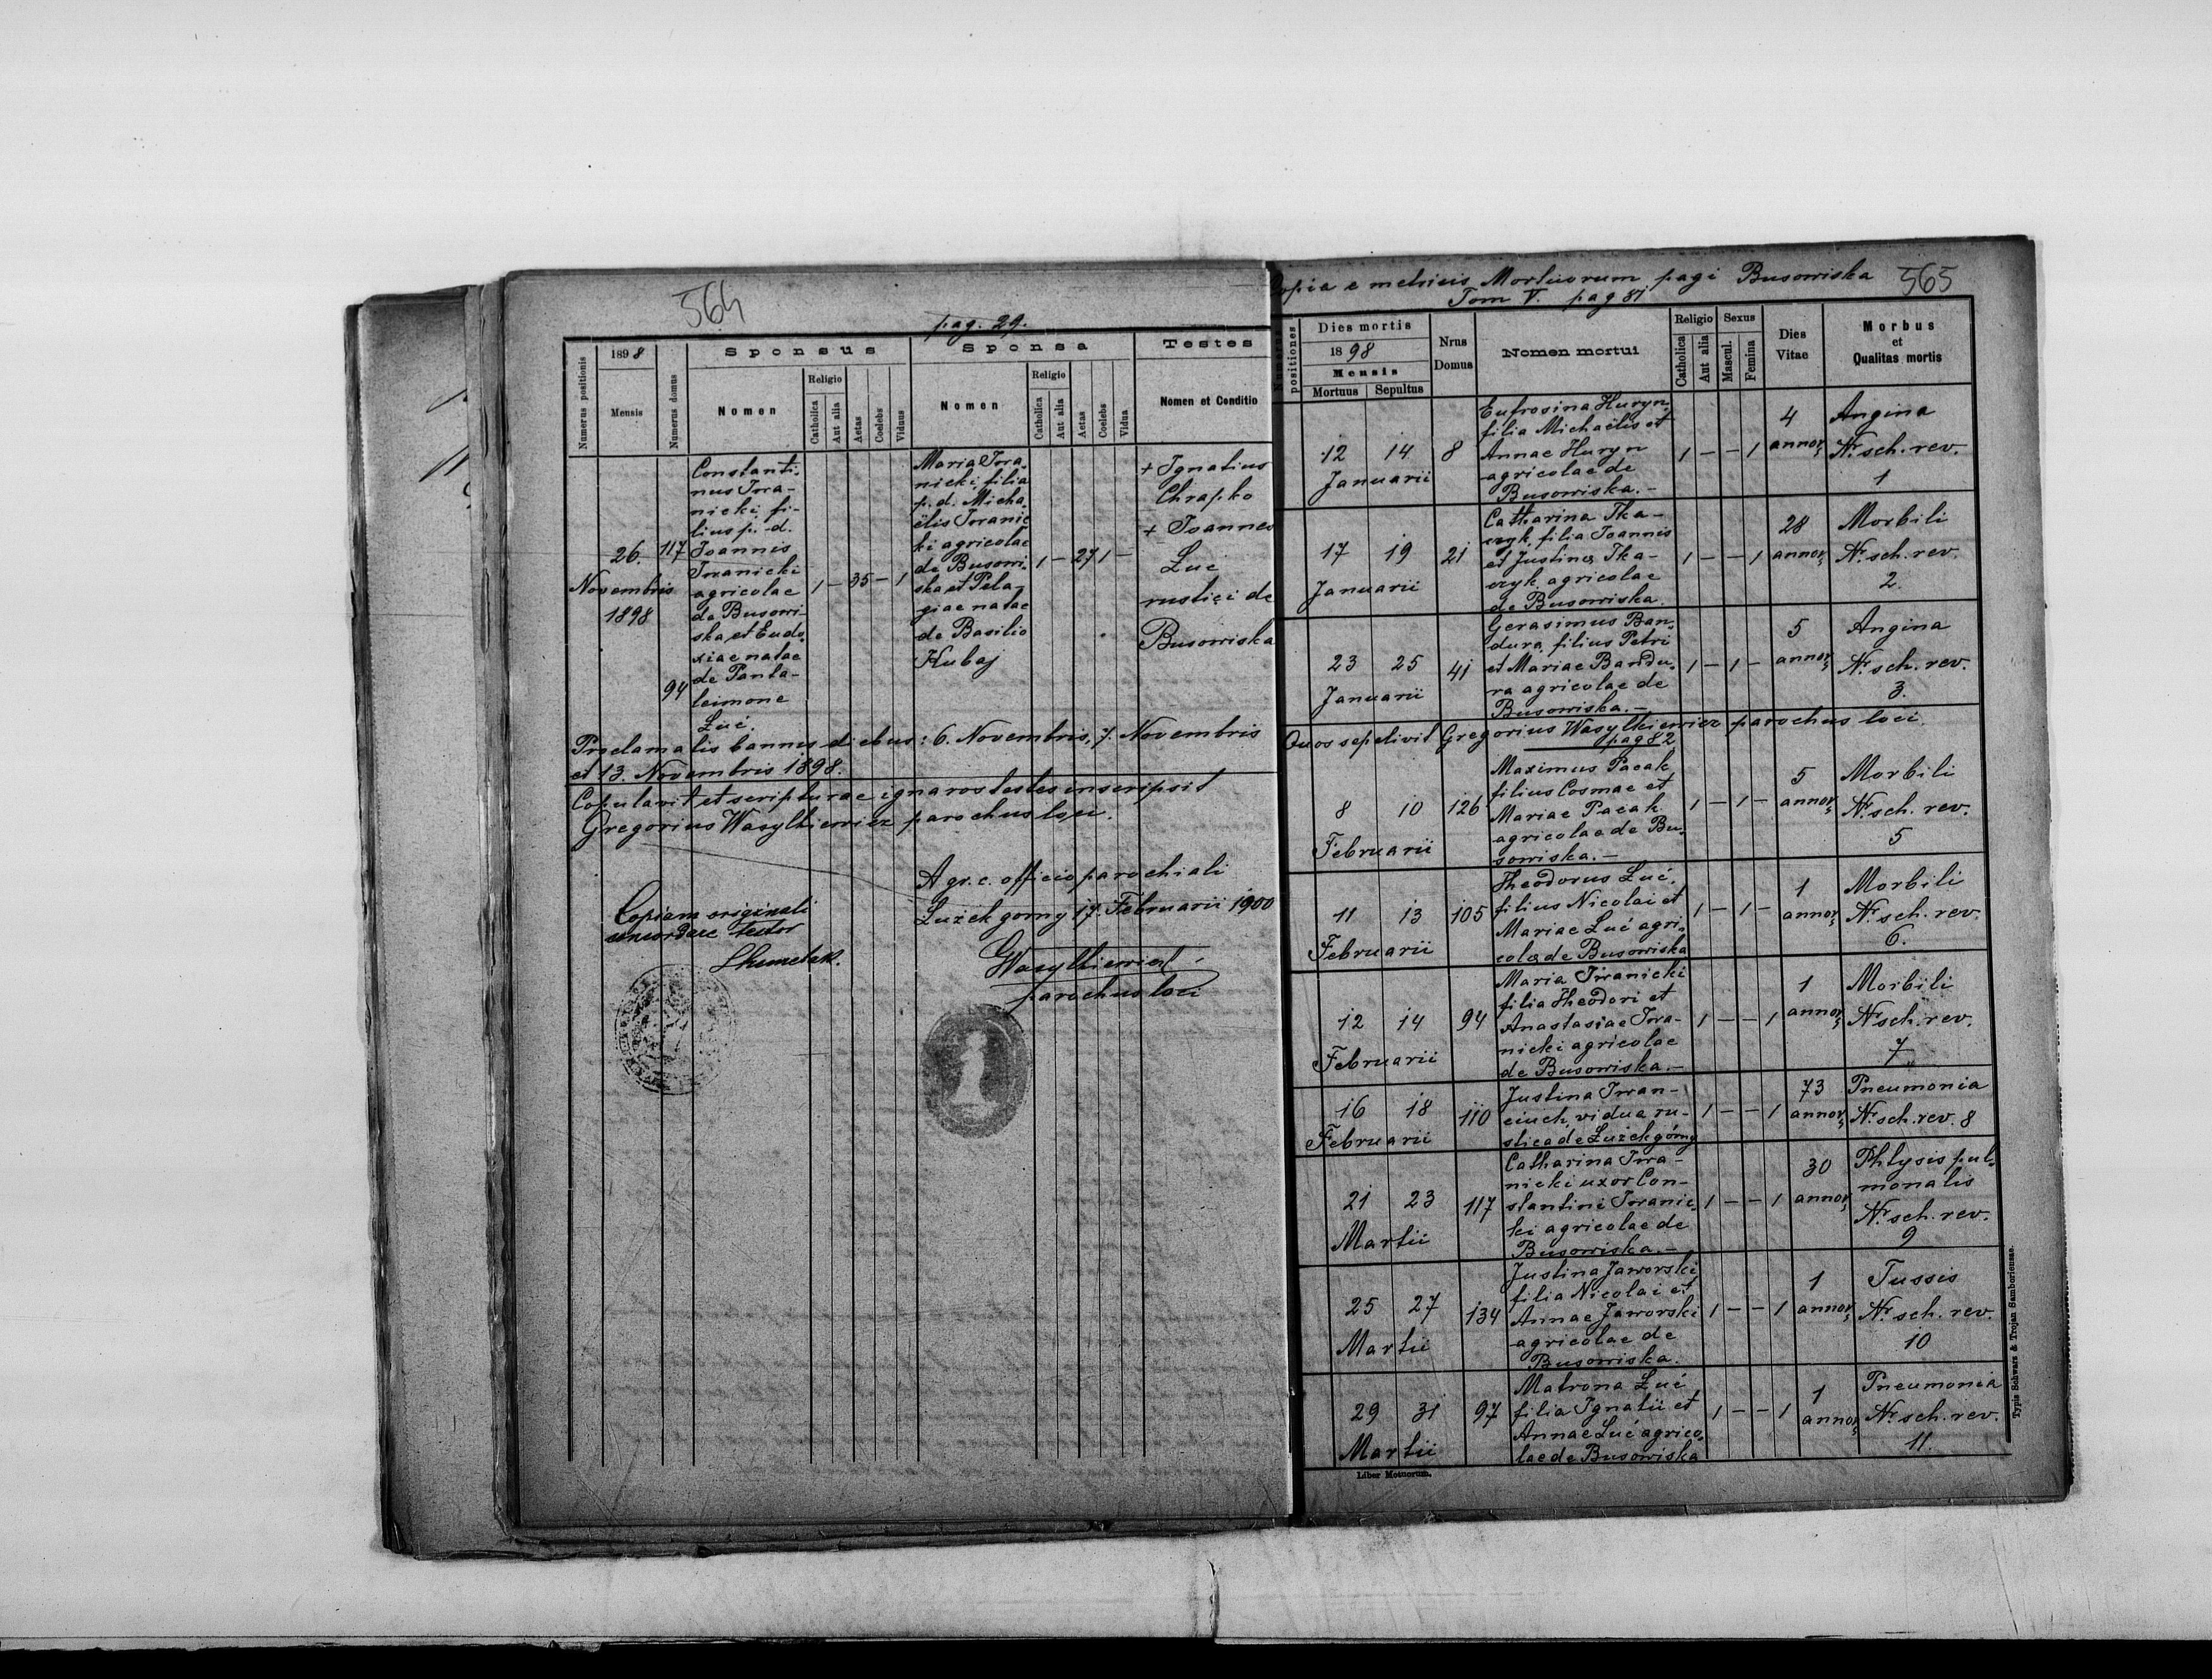 564
pag. 29.
Numerus positionis
1898
Mensis
Numerus domus
Sponsus
Nomen
Religio
Catholica
Aut alia
Aetas
Coelebs
Viduus
Sponsa
Nomen
Religio
Catholica
Aut alia
Aetas
Coelebs
Vidua
Testes
Nomen et Conditio
26.
Novembris
1898
117
94
Constanti-
nus Iwa-
nicki, fi-
lius p. d.
Joannis
Iwanicki
agricolae
de Busowi-
ska, et Eudo-
xiae natae
de Panta-
leimone
Łuć.
1 — 35 — 1
Maria Iwa-
nicki, filia
p. d. Micha-
ëlis Iwanic
ki agricolae
de Busowi-
ska et Pela-
giae natae
de Basilio
Hubaj
1 — 27 1 —
+ Ignatius
Chrapko
+ Joannes
Łuć
rustici de
Busowiska
Proclamatis bannis diebus: 6. Novembris, 7. Novembris
et 13. Novembris 1898.
Copulavit et scripturae ignaros testes inscripsit
Gregorius Wasylkiewicz parochus loci.
A gr. c. officio parochiali
Łużek gorny 17. Februarii 1900
Wasylkiewicz
parochus loci
Copiam originali
concordare testor
565
Copia e metricis Mortuorum pagi Busowiska
Tom V. pag 81
Numerus positiones
Dies mortis
1898
Mensis
Mortuus
Sepultus
Nrus
Domus
Nomen mortui
Religio
Catholica
Aut alia
Sexus
Mascul.
Femina
Dies
Vitae
Morbus
et
Qualitas mortis
12 14
Januarii
8
Eufrosina Huryn,
filia Michaëlis et
Annae Huryn
agricolae de
Busowiska.—
1 — — 1
4
annor
Angina
Nr. sch. rev.
1
17 19
Januarii
21
Catharina Tka-
czyk, filia Joannis
et Justinae Tka-
czyk agricolae
de Busowiska.
1 — — 1
28
annor
Morbili
Nr. sch. rev.
2.
23 25
Januarii
41
Gerasimus Ban-
dura, filius Petri
et Mariae Bandu-
ra agricolae de
Busowiska.—
1 — 1 —
5
annor
Angina
Nr. sch. rev.
3.
Quos sepelivit Gregorius Wasylkiewicz parochus loci.
pag 82
8 10
Februarii
126
Maximus Pacak
filius Cosmae et
Mariae Pacak
agricolae de Bu-
sowiska.—
1 — 1 —
5
annor
Morbili
Nr. sch. rev.
5
11 13
Februarii
105
Theodorus Łuć,
filius Nicolai et
Mariae Łuć agri-
colae de Busowiska
1 — 1 —
1
annor
Morbili
Nr. sch. rev.
6.
12 14
Februarii
94
Maria Iwanicki
filia Theodori et
Anastasiae Iwa-
nicki agricolae
de Busowiska.—
1 — — 1
1
annor
Morbili
Nr. sch. rev.
7
16 18
Februarii
110
Justina Iwan-
ciuch, vidua ru-
stica de Łużek górny
1 — — 1
73
annor
Pneumonia
Nr. sch. rev. 8
21 23
Martii
117
Catharina Iwa-
nicki uxor Con-
stantini Iwanic-
ki agricolae de
Busowiska.—
1 — — 1
30
annor
Phtysis pul-
monalis
Nr. sch. rev.
9
25 27
Martii
134
Justina Jaworski,
filia Nicolai et
Annae Jaworski
agricolae de
Busowiska.
1 — — 1
1
annor
Tussis
Nr. sch. rev.
10
29 31
Martii
97
Matrona Łuć
filia Ignatii et
Annae Łuć agrico-
lae de Busowiska
1 — — 1
1
annor
Pneumonia
Nr. sch. rev.
11.
Liber Motuorum.
Typis Schwarz & Trojan Samboriensae.